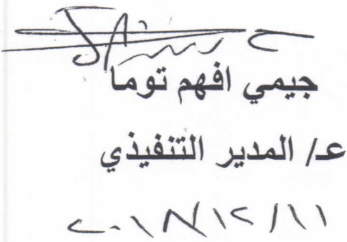 جيمي افهم توما
عـ/ المدير التنفيذي
٢٠١٨/١٢/١١